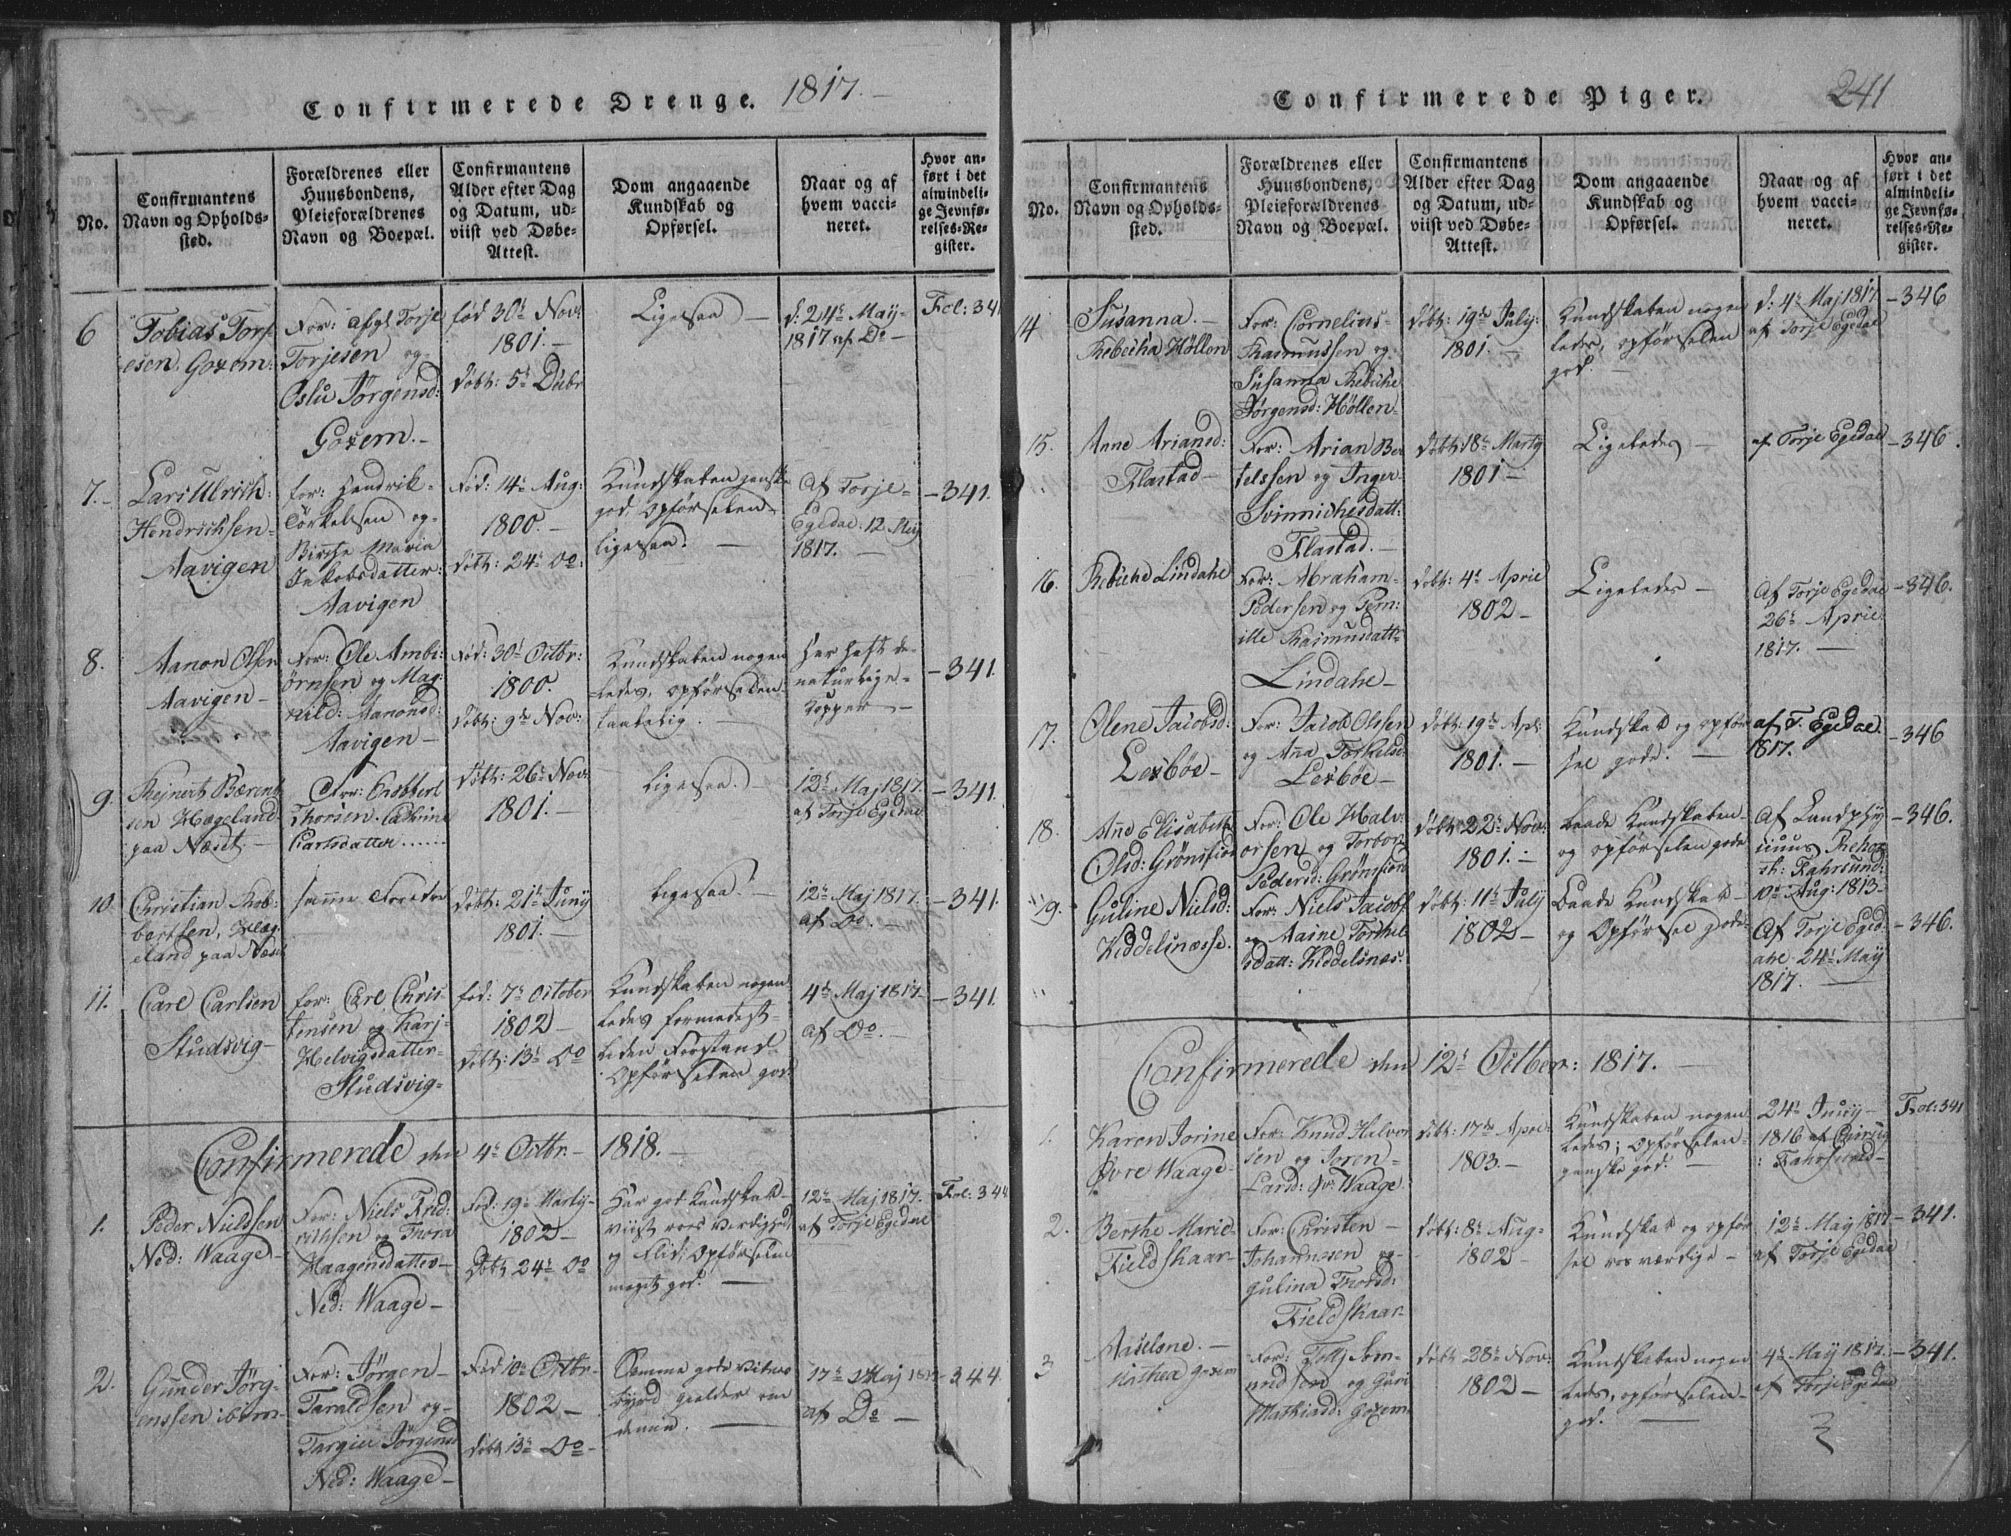 Confirmerede Drenge. 1817.
No.
Confirmantens
Navn og Opholds-
sted.
Forældrenes eller
Huusbondens,
Pleieforældrenes
Navn og Boepæl.
Confirmantens
Alder efter Dag
og Datum, ud-
viist ved Døbe-
Attest.
Dom angaaende
Kundskab og
Opførsel.
Naar og af
hvem vacci-
neret.
Hvor an-
ført i det
almindeli-
ge Jevnfø-
relses-Re-
gister.
6
Tobias Torj-
esen. Goxem.
For: afgl Torje
Torjesen og
Oslu Jørgensd:
Goxem.
fød 30te Novr
1801.
døbt: 5te Dcbr
Ligesaa
d. 24de May
1817 af Do
Fol: 341
7.
Lars Ulrich
Hendrichsen
Aavigen
for: Hendrik
Törkelsen og
Birthe Maria
Jakobsdatter
Aavigen
Fød: 14de Aug:
1800.
døbt: 24de Do:
Kundskaben ganske
god, Opførselen
ligesaa.
Af Torje
Egedal: 12 May
1817.
341.
8.
Aanon Olsen
Aavigen
For: Ole Ambi-
örnsen og Mag-
nild: Aanonsd:
Aavigen
Fød: 30te Octbr:
1800.
døbt: 9de Nov:
Kundskaben nogen-
ledes, opførselen
taalelig.
Har haft de
naturlige
Kopper
341.
9.
Rejnert Bærent-
sen Hægeland
paa Næset.
For: Robbert
Thorsen. Cathrine
Carlsdatter
døbt: 26de Nov:
1801.
ligesaa.
12te Maj 1817.
af Torje Egedal
341.
10.
Christian Rob-
bertsen, Hæg-
eland paa Næset
samme Forældre
døbt: 21de Juny
1801.
ligesaa.
12te Maj 1817.
af Do.
341.
11.
Carl Carlsen
Studsvig
for: Carl Chris-
tensen og Karj
Helvigsdatter
Studsvig
fød: 7de October
1802
døbt: 13de Do
Kundskaben nogen-
ledes formedelst
liden Forstand
Opførselen god.
4de Maj 1817.
af Do.
341.
Confirmerede den 4de Octbr. 1818.
1.
Peder Nielssen
Ned: Waage
For: Niels Frid-
richsen og Thora
Haagensdatter
Ned: Waage
Fød: 19de Martij
1802
Døbt 24de Do
Har god Kundskab
viist roes værdighed
og Flid; Opførselen
meget god.
12te Maj 1817.
af Torje Egedal
Fol: 344
2.
Gunder Jörg-
enssen ibdm
For: Jörgen
Taraldsen og
Targier Jörgensd
Ned: Waage
Fød 10de Octbr
1802
døbt 13de Do
Samme gode vidnes-
byrd gielder om
denne.
17de Maj 1817
af Do
344.
Confirmerede Piger. 241
No.
Confirmantens
Navn og Opholds-
sted.
Forældrenes eller
Huusbondens,
Pleieforældrenes
Navn og Boepæl.
Confirmantens
Alder efter Dag
og Datum, ud-
viist ved Døbe-
Attest.
Dom angaaende
Kundskab og
Opførsel.
Naar og af
hvem vacci-
neret.
Hvor an-
ført i det
almindeli-
ge Jevnfø-
relses-Re-
gister.
14
Susanna
Rebecha Höllen
For: Cornelius
Rasmussen og
Susanna Rebeche
Jørgensd: Höllen
døbt: 19de July
1801.
Kundskaben nogen
ledes, opførselen
god.
d: 4de Maj 1817.
af Torje Egedal
346
15.
Anne Ariansd:
Flastad
For: Arian Ber
telssen og Inger
Svinnichesdatt:
Flastad.
døbt: 18de Martij
1801
Ligeledes
af Torje Egedal
346.
16.
Rebeche Lindahl
For: Abraham
Pedersen og Pern:
ille Rasmusdatt:
Lindahl
døbt: 4de April
1802
Ligeledes
Af Torje Egedal
26de April
1817.
346.
17.
Olene Jacobsd:
Lexböe
For: Jacob Olssen
og Aña Torkelsd:
Lexböe
døbt: 19de Apl:
1801.
Kundskab og opfør
sel gode.
af T. Egedal
1817.
346
18.
Añe Elisabeth
Olsd: Grönsfiord
For: Ole Halv-
orsen og Torbor
Pedersd: Grönsfiord
døbt 22de Nov:
1801.
baade Kundskaben
og opførselen gode
Af Landphy
Fahrsund:
10de Aug: 1813
346.
19.
Guline Nielsd:
Keddelsnæsse.
For: Niels Jacobs
og Aaine Torkel
sdatt: Keddelsnæs.
døbt: 11te July
1802
Baade Kundskab
og Opførsel gode
Af Torje Eged
ahl 24de Maij
1817.
346.
Confirmerede den 12te Octbr: 1817.
1.
Karen Jorine
Övre Waage
For: Knud Halvor
sen og Joren
Larsd: Øv: Waage
døbt: 17de Apl:
1803.
Kundskaben nogen
ledes; Opførselen
ganske god.
24de July
1816 af Chirurg
: Fahrsund
Fol: 341
2.
Berthe Marie
Fieldskaar
For: Christen
Johannesen og
Gulina Thorsd:
Fieldskaar
døbt: 8de Aug
1802
Kundskab og opfør
sel roesværdige
12te May 1817
af Torje Egedal
341.
3
Aaselene
Mathea Goxem
For: Tollj Som-
undsen og Guri
Mathiasd: Goxem.
døbt 28de Nov:
1802
Kundskaben nogen
ledes, opførselen
god.
4de May 1817.
af Torje Egedal
341.